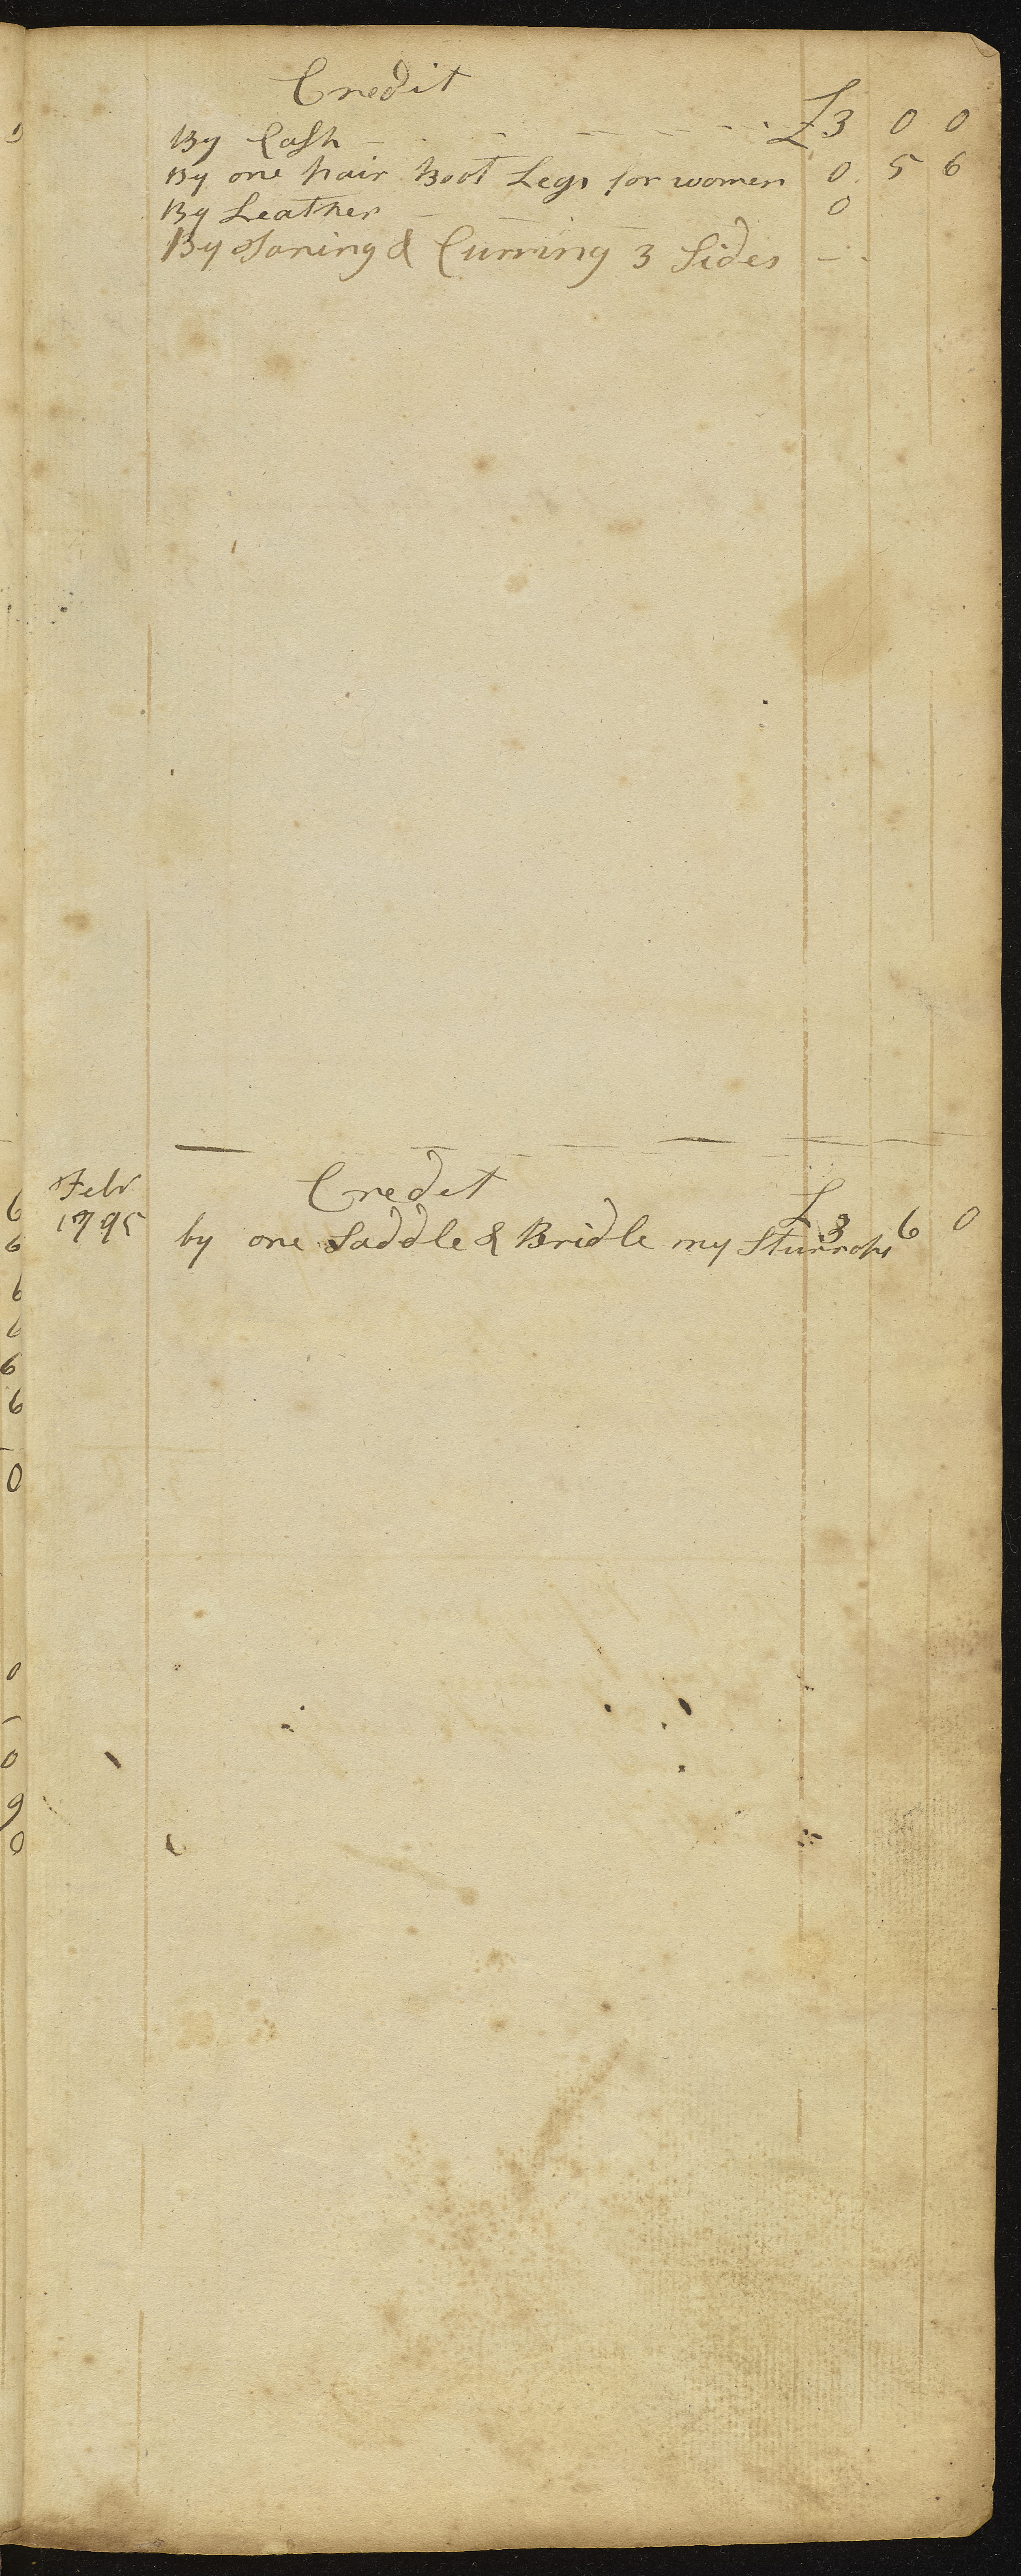 Credit
By Cash - - - - - - - £3 0 0
By one pair Boot Legs for women 0 5 6
By Leather - - 0
By Taning & Curring 3 Sides - -
Febr Credet
1795 by one Saddle & Bridle my Sturrops £3 6 0
6
6
6
6
6
6
0
0
0
9
0